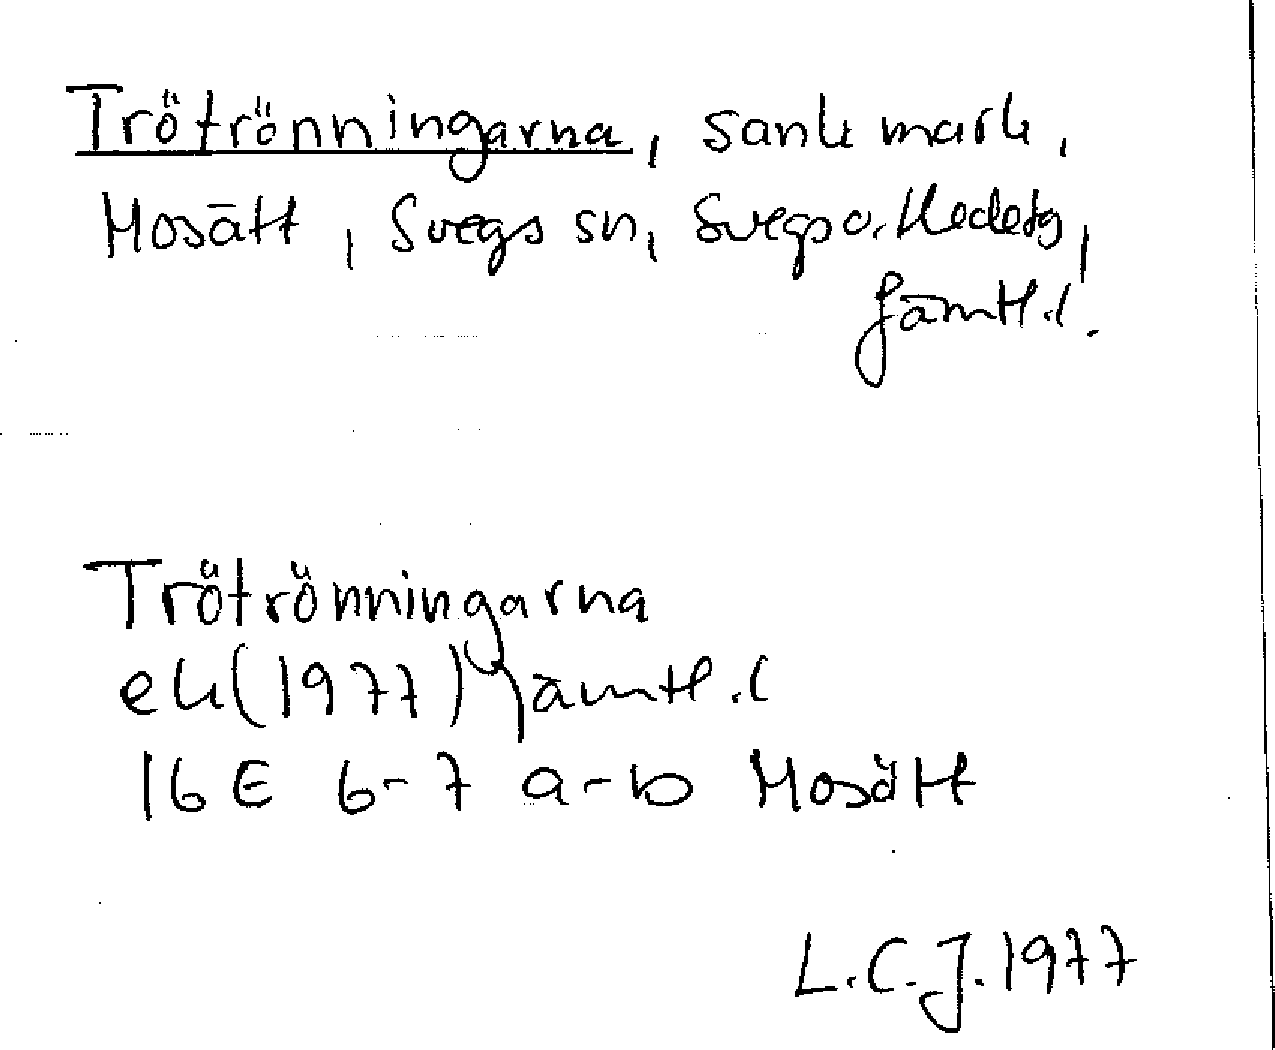 Trötrönningarna, sank mark,
Mosätt, Svegs sn, Svegs o. Hedetg,
Jämtl. l.
Trötrönningarna
ek (1977) Jämtl. l
16 E 6-7 a-b Mosätt
L.C.J. 1977